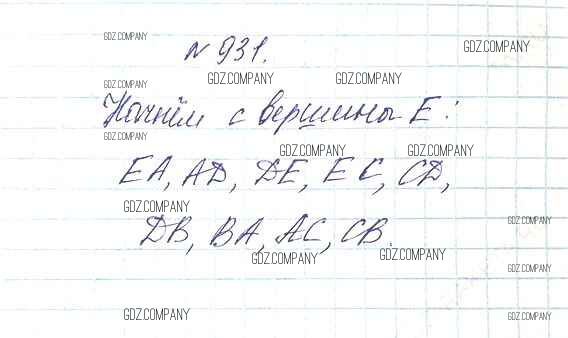 GDZ.COMPANY
№ 931.
GDZ.COMPANY
GDZ.COMPANY GDZ.COMPANY GDZ.COMPANY
Начнём с вершины E:
GDZ.COMPANY
GDZ.COMPANY GDZ.COMPANY
EA, AD, DE, EC, CD,
GDZ.COMPANY
GDZ.COMPANY
DB, BA, AC, CB.
GDZ.COMPANY GDZ.COMPANY
GDZ.COMPANY
GDZ.COMPANY GDZ.COMPANY